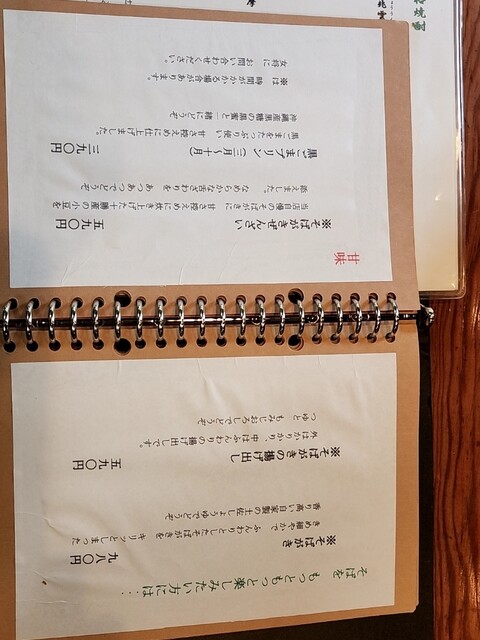 そばを もっともっと楽しみたい方には…
※そばがき 九八〇円
きめ細やかで ふんわりとしたそばがきを キリッとしまった
香り高い自家製の土佐しょうゆでどうぞ
※そばがきの揚げ出し 五九〇円
外はかりかり、中はふんわりの揚げ出しです。
つゆと もみじおろしでどうぞ
甘味
※そばがきぜんざい 五九〇円
当店自慢のそばがきに 甘さ控えめに炊き上げた十勝産の小豆を
添えました。 なめらかな舌ざわりを あつあつでどうぞ
黒ごまプリン(三月~十月) 三九〇円
黒ごまをたっぷり使い 甘さ控えめに仕上げました。
沖縄産黒糖の黒蜜と一緒にどうぞ
※は 時間がかかる場合があります。
女将に お問い合わせください。